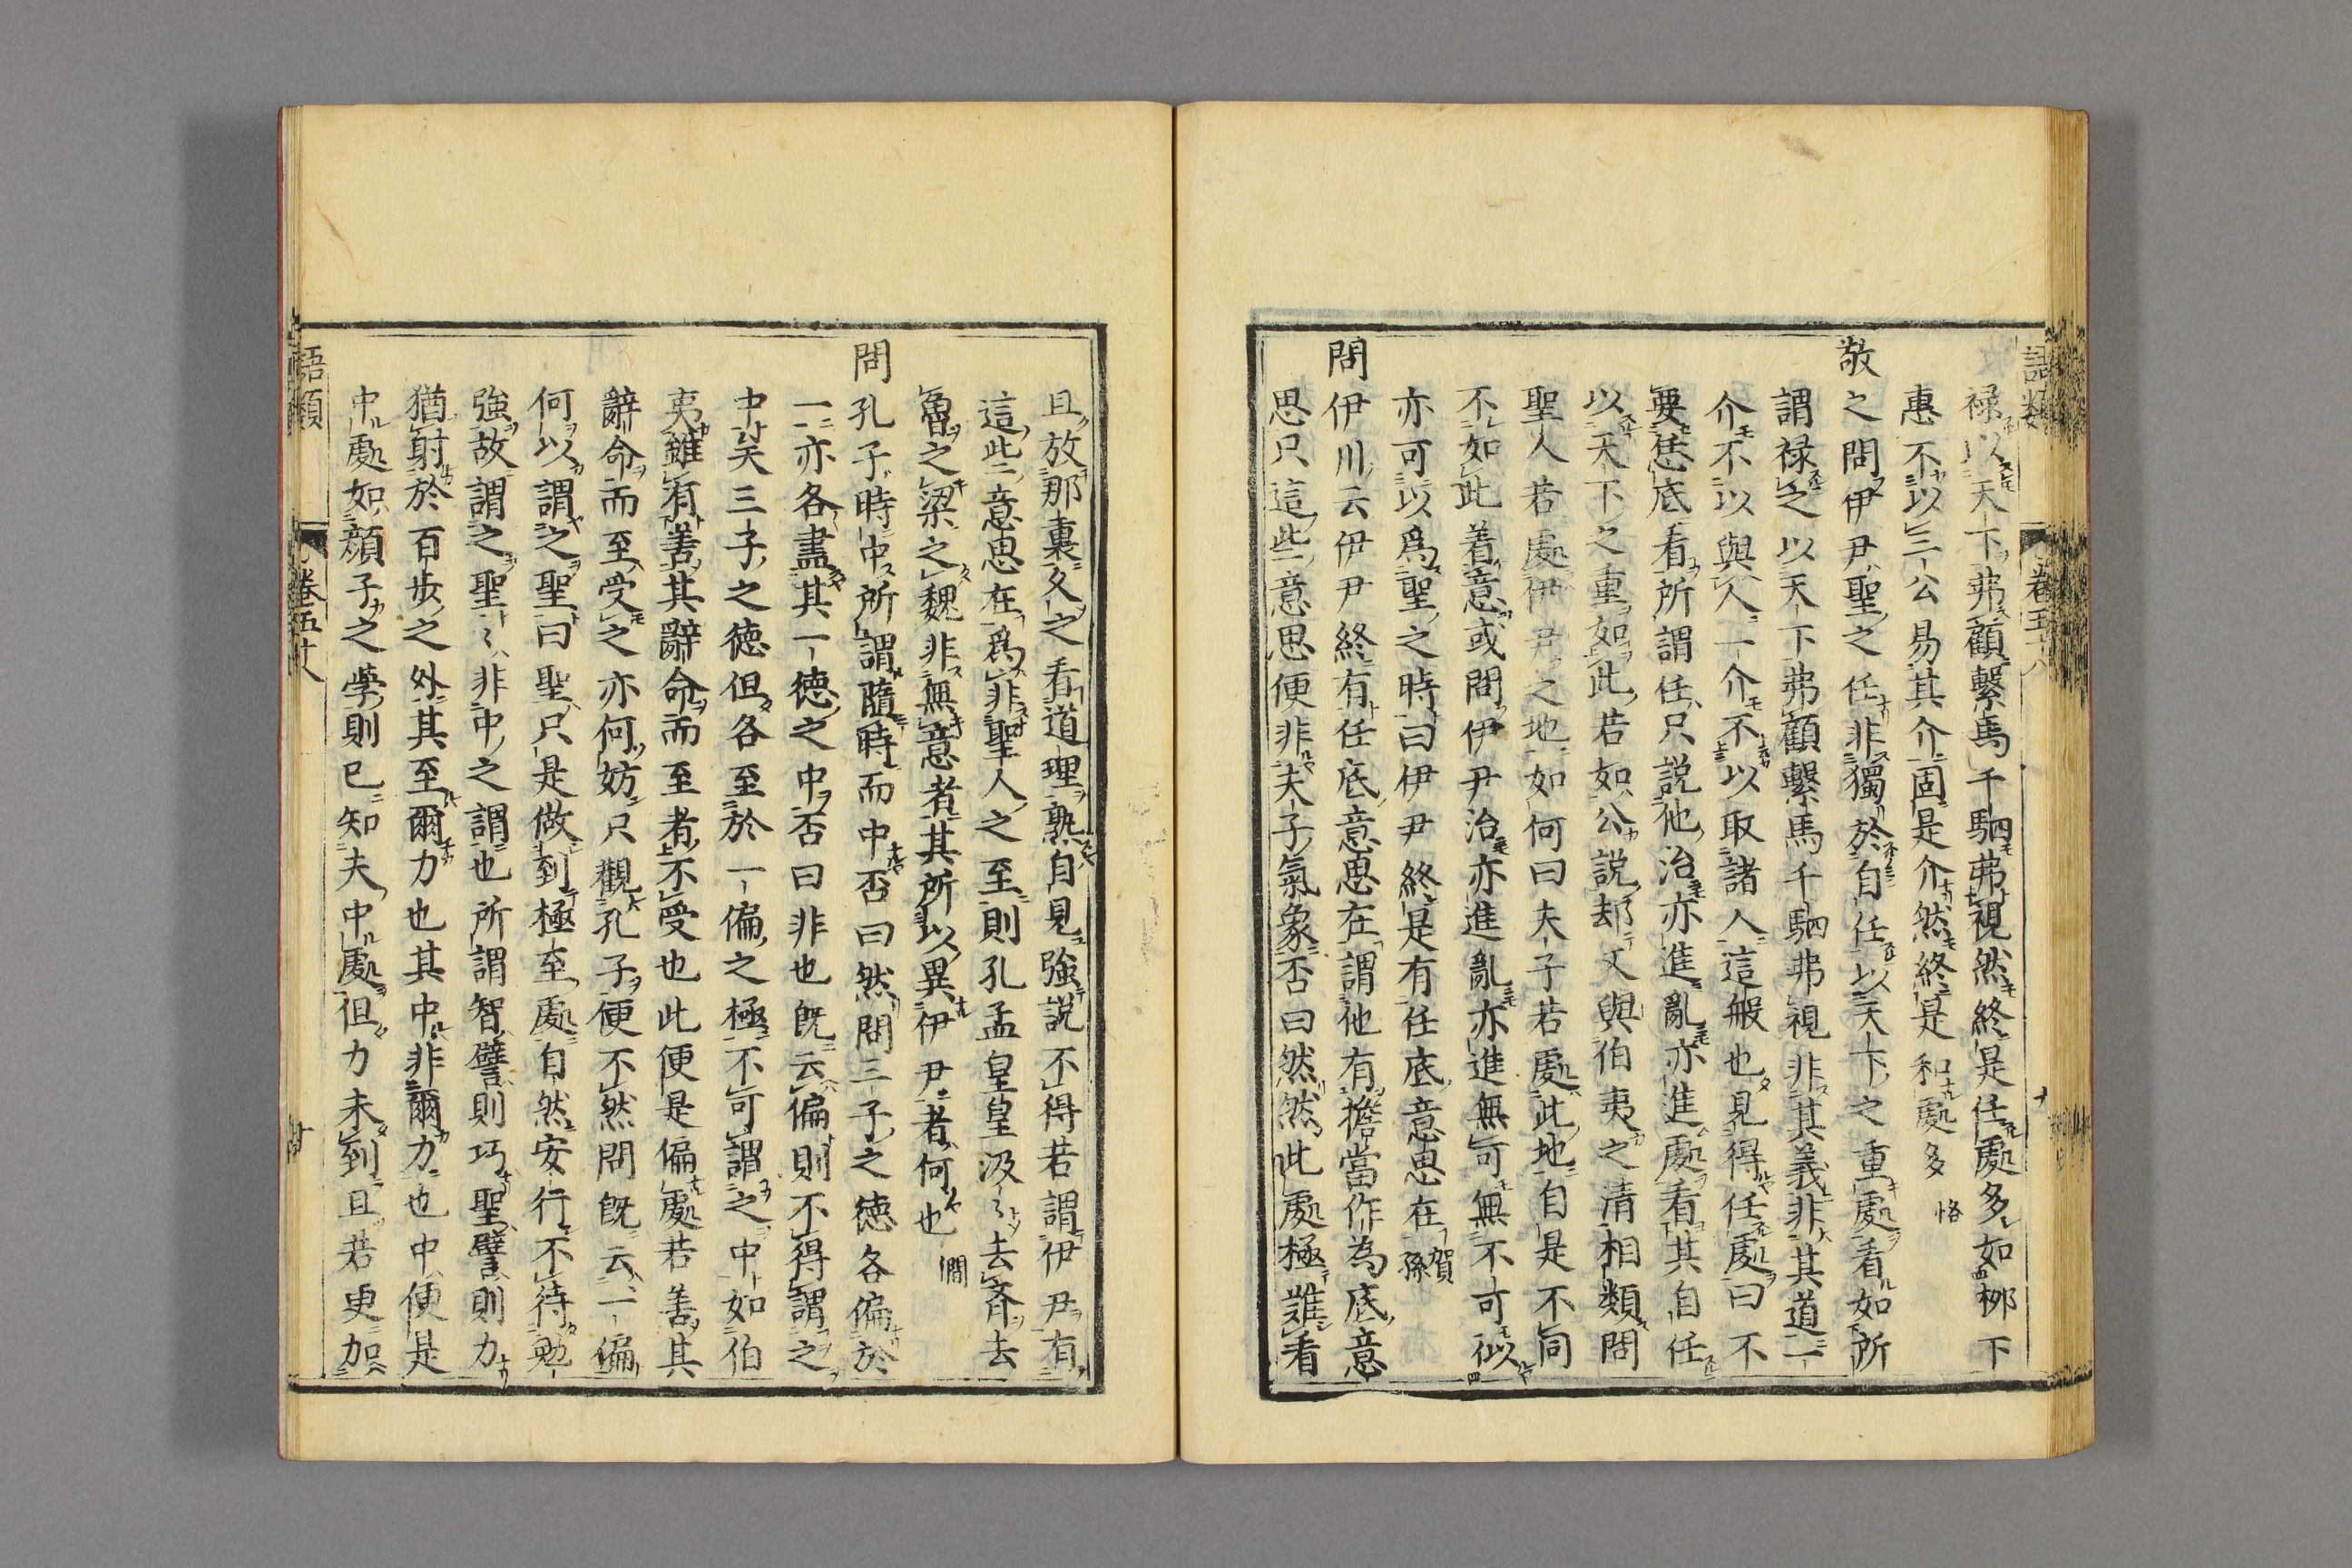 語類 卷五十八 十
禄以天下弗顧繋馬千駟弗視然終是任處多如柳下
惠不以三公易其介固是介然終是和處多 恪
敬之問伊尹聖之任非獨於自任以天下之重處看如所
謂禄之以天下弗顧繋馬千駟弗視非其義非其道一
介不以與人一介不以取諸人這般也見得任處曰不
要恁底看所謂任只説他治亦進亂亦進處看其自任
以天下之重如此若如公説却又與伯夷之清相類問
聖人若處伊尹之地如何曰夫子若處此地自是不同
不如此着意或問伊尹治亦進亂亦進無可無不可似
亦可以爲聖之時曰伊尹終是有任底意思在 賀孫
問伊川云伊尹終有任底意思在謂他有擔當作為底意
思只這些意思便非夫子氣象否曰然然此處極難看
且放那裏久之看道理熟自見強説不得若謂伊尹有
這些意思在爲非聖人之至則孔孟皇皇汲〻去齊去
魯之梁之魏非無意者其所以異伊尹者何也 僩
問孔子時中所謂隨時而中否曰然問三子之徳各偏於
一亦各盡其一徳之中否曰非也既云偏則不得謂之
中矣三子之徳但各至於一偏之極不可謂之中如伯
夷雖有善其辭命而至者不受也此便是偏處若善其
辭命而至受之亦何妨只觀孔子便不然問既云一偏
何以謂之聖曰聖只是做到極至處自然安行不待勉
強故謂之聖〻非中之謂也所謂智譬則巧聖譬則力
猶射於百歩之外其至爾力也其中非爾力也中便是
中處如顔子之學則已知夫中處但力未到且若更加
語類 卷五十八 十